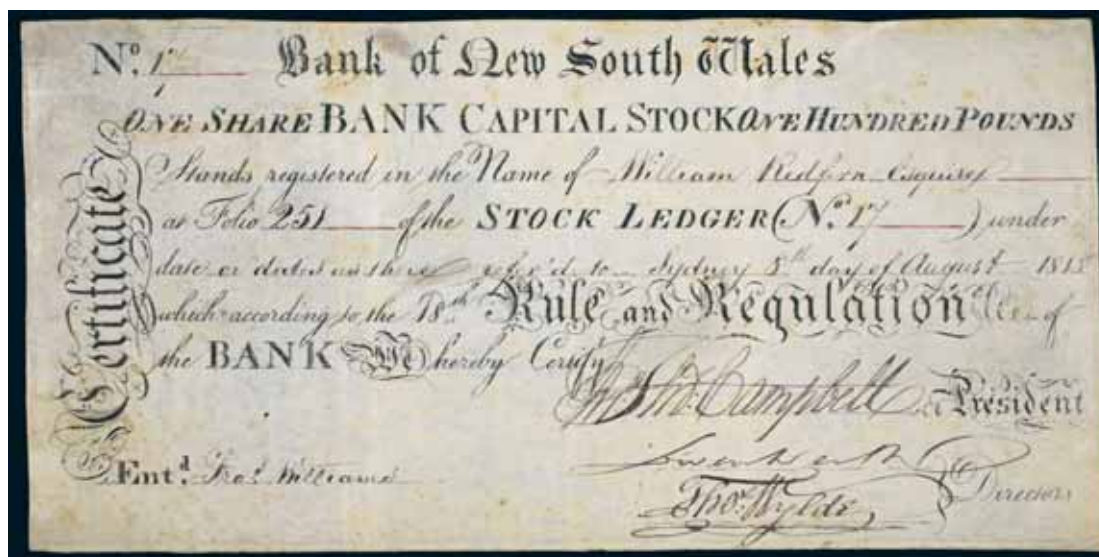 Nº. 17 Bank of New South Wales
ONE SHARE BANK CAPITAL STOCK ONE HUNDRED POUNDS
Certificate
Stands registered in the Name of William Redfern Esquire
at Folio 251 of the STOCK LEDGER (Nº. 17 ) under
date or dates as there refer'd to Sydney 8th day of August
which according to the 18th Rule and Regulation of
the BANK We hereby Certify
Campbell President
Entd. Williams
Thos. Wylde Directors